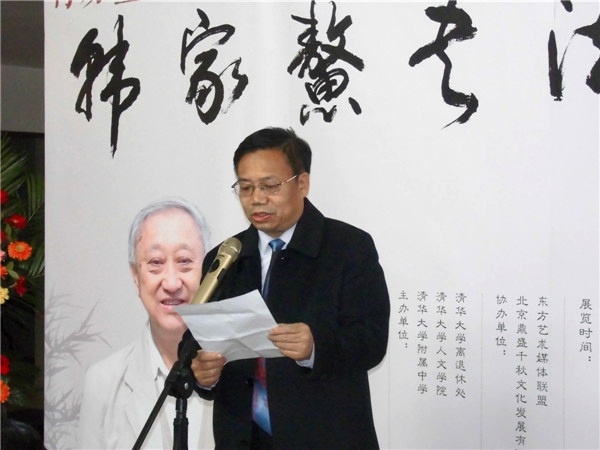 韩家鳌书法
展览时间：
东方艺术媒体联盟
北京鼎盛千秋文化发展有
协办单位：
清华大学离退休处
清华大学人文学院
清华大学附属中学
主办单位：